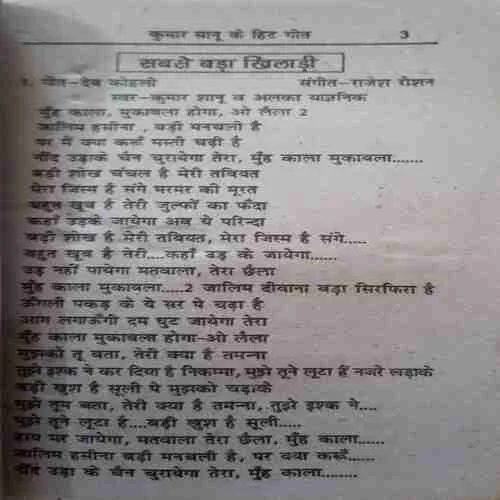 कुमार सानू के हिट गीत 3
सबसे बड़ा खिलाड़ी
1. गीत-देव कोहली संगीत-राजेश रोशन
स्वर-कुमार शानू व अलका याज्ञनिक
मुँह काला, मुकाबला होगा, ओ लैला 2
जालिम हसीना , बड़ी मनचली है
पर मैं क्या करूँ मस्ती चढ़ी है
नींद उड़ाके चैन चुरायेगा तेरा, मुँह काला मुकाबला.......
बड़ी शोख चंचल है मेरी तबियत
मेरा जिस्म है संगे मरमर की मूरत
बहुत खूब है तेरी जुल्फों का फँदा
कहाँ उड़के जायेगा अब ये परिन्दा
बड़ी शोख है मेरी तबियत, मेरा जिस्म है संगे.....
बहुत खूब है तेरी....कहाँ उड़ के जायेगा......
उड़ नहीं पायेगा मतवाला, तेरा छैला
मुँह काला मुकाबला.....2 जालिम दीवाना बड़ा सिरफिरा है
ऊँगली पकड़ के ये सर पे चढ़ा है
आग लगाऊँगी दम घुट जायेगा तेरा
मुँह काला मुकाबला होगा-ओ लैला
मुझको तू बता, तेरी क्या है तमन्ना
तुझे इश्क ने कर दिया है निकम्मा, मुझे तूने लूटा है नजरे लड़ाके
बड़ी खुश है सूली पे मुझको चढ़ाके
मुझे तुम बता, तेरी क्या है तमन्ना, तुझे इश्क ने....
मुझे तूने लूटा है....बड़ी खुश है सूली.....
हाय मर जायेगा, मतवाला तेरा छैला, मुँह काला......
जालिम हसीना बड़ी मनचली है, पर क्या करूँ......
नींद उड़ा के चैन चुरायेगा तेरा, मुँह काला........